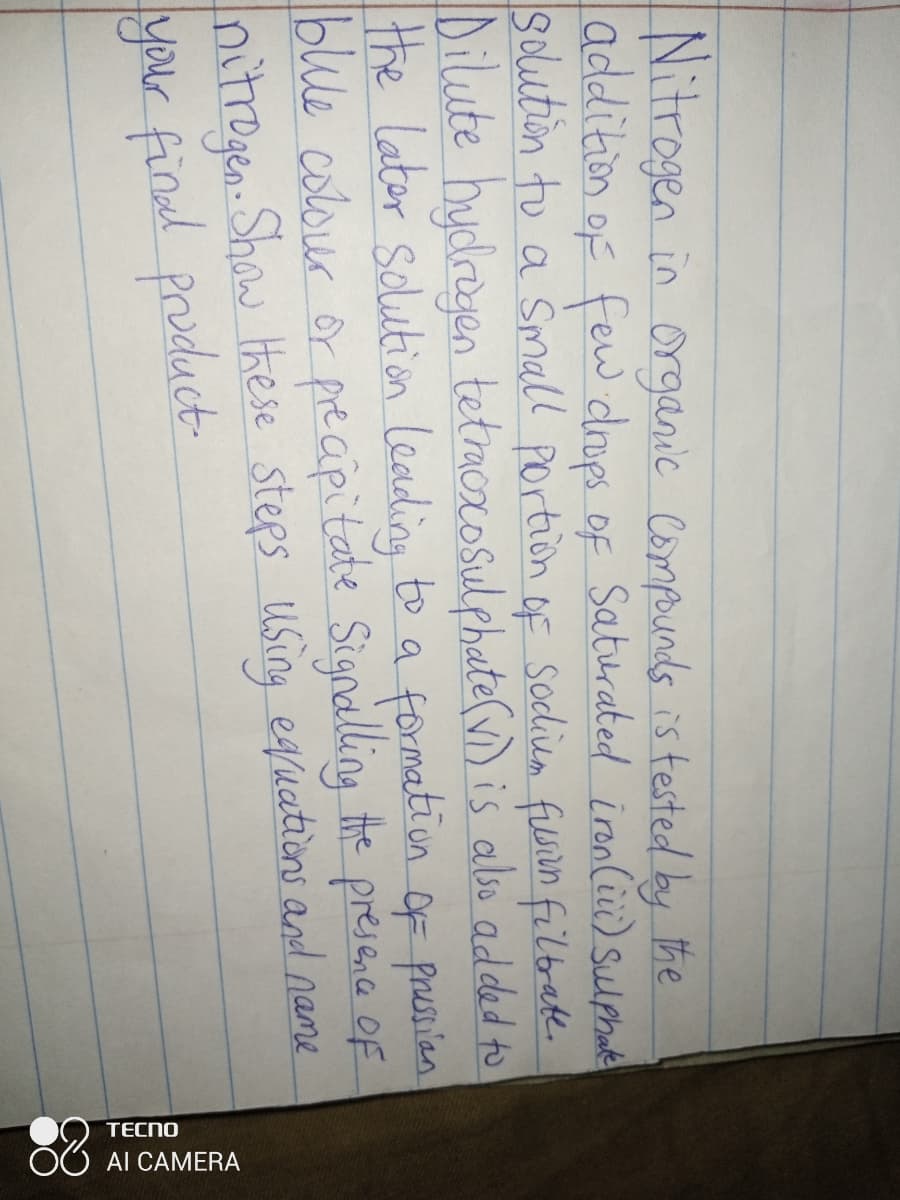 Nitrogen in organic compounds is tested by the
addition of few drops of saturated iron(iii) sulphate
solution to a small portion of sodium fusion filtrate.
Dilute hydrogen tetraoxosulphate(vi) is also added to
the later solution leading to a formation of prussian
blue colour or precipitate signalling the presence of
nitrogen. Show these steps using equations and name
your final product.
TECNO
AI CAMERA